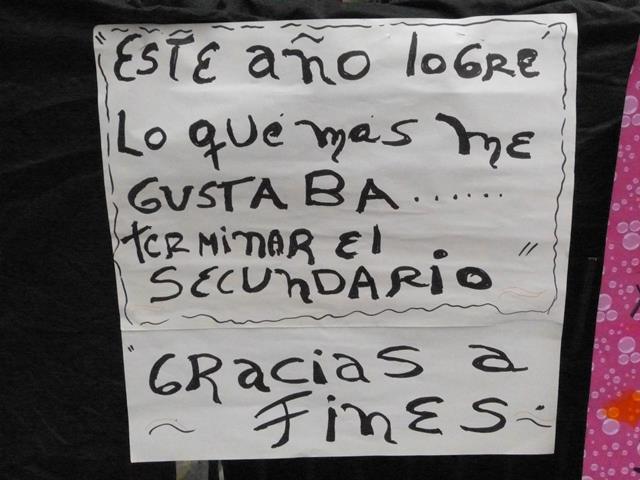 "ESTE año loGRE
Lo qué más me
GUSTABA.......
tERMiNAR El
SECUnDARio"
"GRacias a
FinES